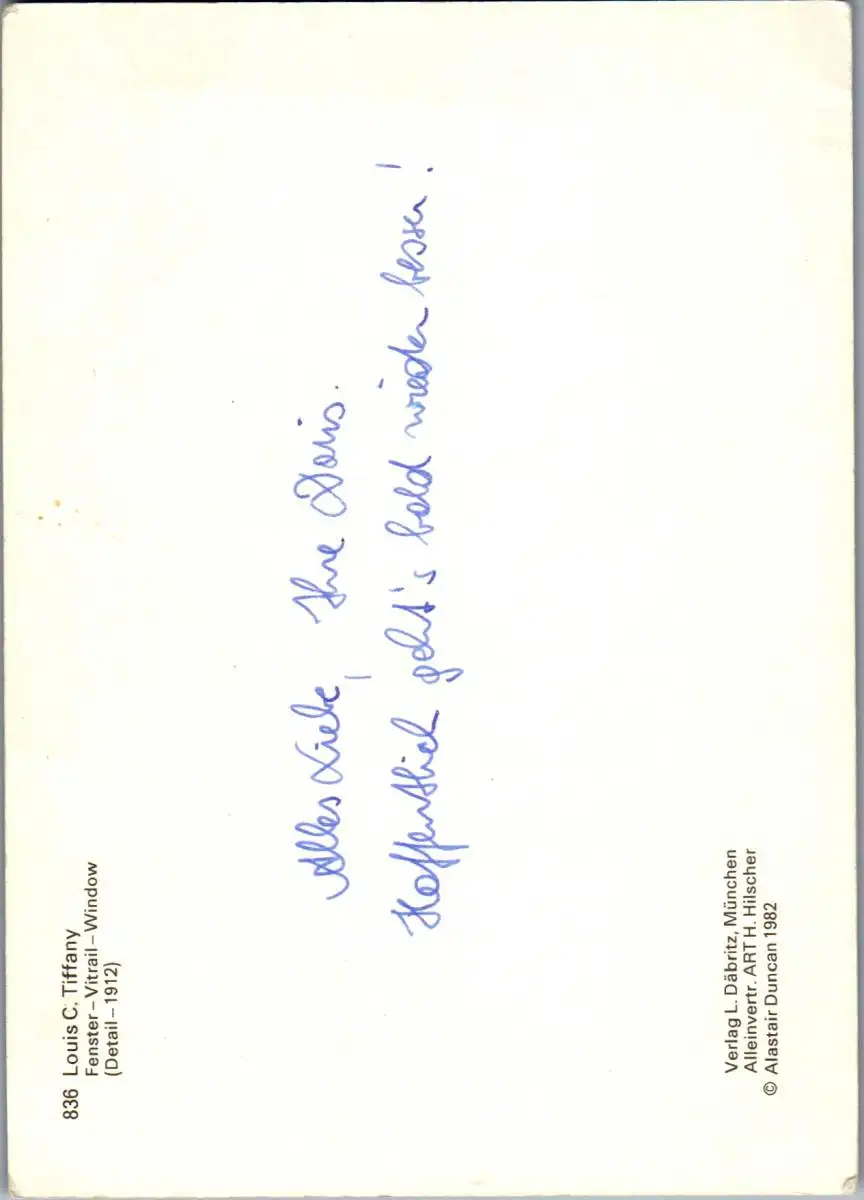 836 Louis C. Tiffany
Fenster – Vitrail – Window
(Detail – 1912)
Alles Liebe, Ihre Doris.
Hoffentlich geht's bald wieder besser!
Verlag L. Däbritz, München
Alleinvertr. ART H. Hilscher
© Alastair Duncan 1982